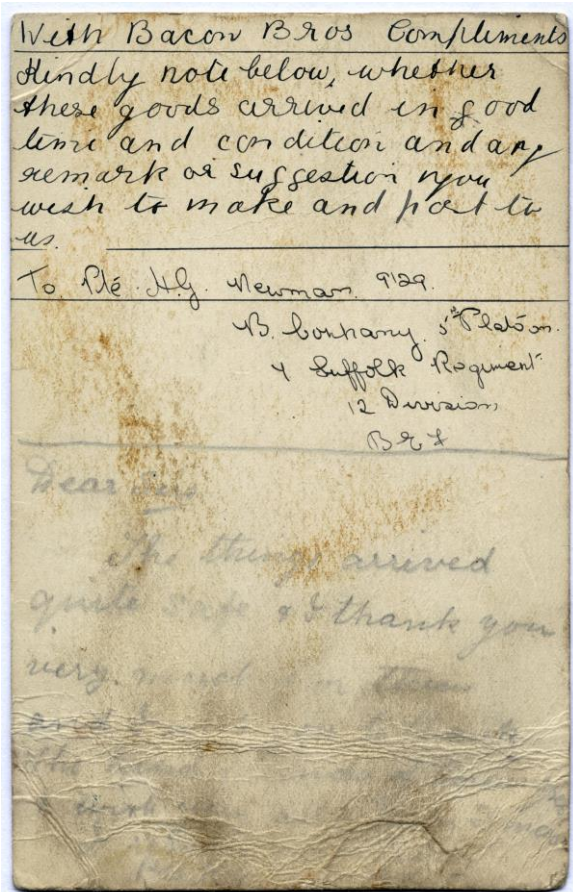 With Bacon Bros Compliments
Kindly note below, whether
these goods arrived in good
time and condition and any
remark or suggestion you
wish to make and post to
us.
To Pte H.G. Newman 9129
B. Company 5th Platoon
4 Suffolk Regiment
12 Division
B E F
Dear Sirs
The things arrived
quite safe & I thank you
very much for them
and I
the
I wish you